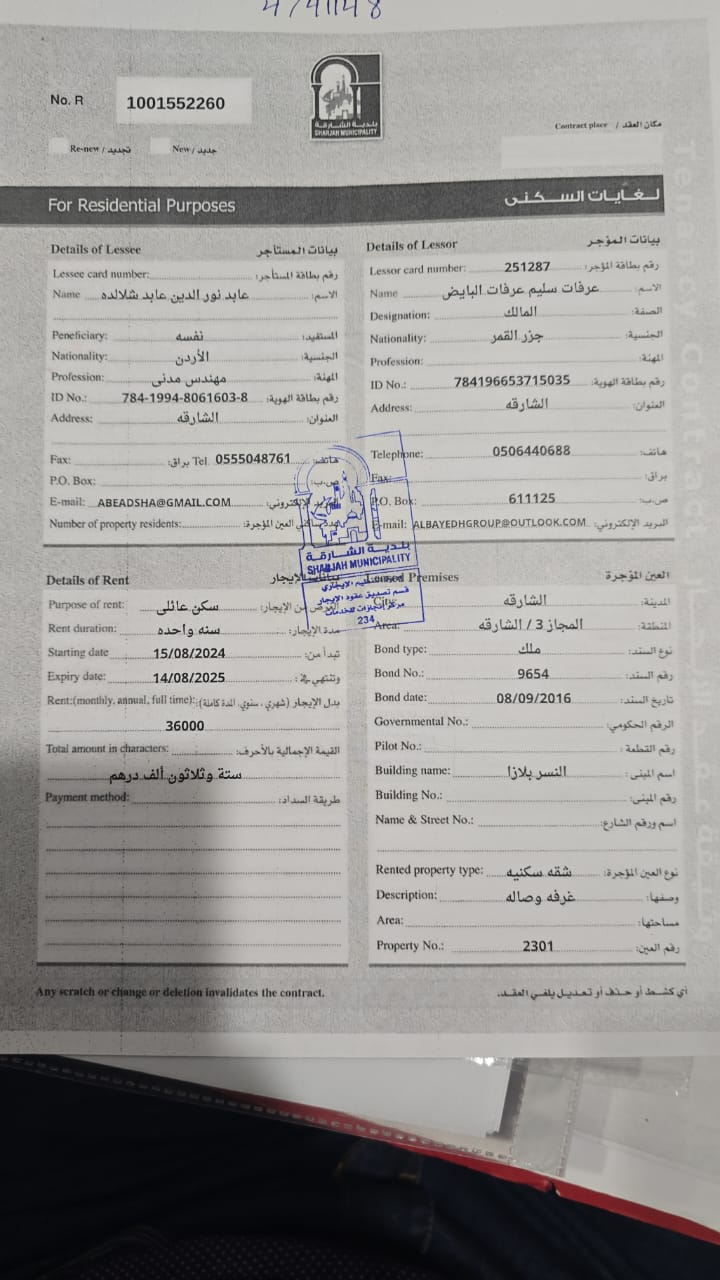 4741148
No. R 1001552260
بلدية الشارقة
SHARJAH MUNICIPALITY
Contract place / مكان العقد
Re-new / تجديد New / جديد
For Residential Purposes لغايات السكنى
Details of Lessee بيانات المستأجر
Lessee card number: رقم بطاقة المستأجر:
Name عابد نور الدين عابد شلالده الاسم:
Peneficiary: نفسه المستفيد:
Nationality: الأردن الجنسية:
Profession: مهندس مدنى المهنة:
ID No.: 784-1994-8061603-8 رقم بطاقة الهوية:
Address: الشارقه العنوان:
Fax: براق: Tel. 0555048761 هاتف:
P.O. Box: ص.ب:
E-mail: ABEADSHA@GMAIL.COM البريد الإلكتروني:
Number of property residents: العين المؤجرة:
Details of Lessor بيانات المؤجر
Lessor card number: 251287 رقم بطاقة المؤجر:
Name عرفات سليم عرفات البايض الاسم:
Designation: المالك الصفة:
Nationality: جزر القمر الجنسية:
Profession: المهنة:
ID No.: 784196653715035 رقم بطاقة الهوية:
Address: الشارقه العنوان:
Telephone: 0506440688 هاتف:
Fax: براق:
P.O. Box: 611125 ص.ب:
E-mail: ALBAYEDHGROUP@OUTLOOK.COM البريد الإلكتروني:
بلدية الشارقة
SHARJAH MUNICIPALITY
قسم تصديق عقود الإيجار
مركز إنجازات للخدمات
234
Details of Rent بيانات الإيجار
Purpose of rent: سكن عائلى الغرض من الإيجار:
Rent duration: سنه واحده مدة الإيجار:
Starting date 15/08/2024 تبدأ من:
Expiry date: 14/08/2025 وتنتهي في:
Rent:(monthly, annual, full time): بدل الإيجار (شهري، سنوي، المدة كاملة):
36000
Total amount in characters: القيمة الإجمالية بالأحرف:
ستة وثلاثون ألف درهم
Payment method: طريقة السداد:
Leased Premises العين المؤجرة
City: الشارقه المدينة:
Area: المجاز 3 / الشارقه المنطقة:
Bond type: ملك نوع السند:
Bond No.: 9654 رقم السند:
Bond date: 08/09/2016 تاريخ السند:
Governmental No.: الرقم الحكومي:
Pilot No.: رقم القطعة:
Building name: النسر بلازا اسم المبنى:
Building No.: رقم المبنى:
Name & Street No.: اسم ورقم الشارع:
Rented property type: شقه سكنيه نوع العين المؤجرة:
Description: غرفه وصاله وصفها:
Area: مساحتها:
Property No.: 2301 رقم العين:
Any scratch or change or deletion invalidates the contract. أي كشط أو حذف أو تعديل يلغي العقد.